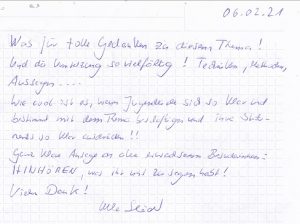 06.02.21
Was für tolle Gedanken zu diesem Thema!
Und die Umsetzung so vielfältig! Techniken, Methoden,
Aussagen....
Wie cool ist es, wenn Jugendliche sich so klar und
bestimmt mit dem Thema beschäftigen und ihre State-
ments so klar ausdrücken!!
Ganz klare Ansage an alle erwachsenen Besucher:innen:
HINHÖREN, was ihr uns zu sagen habt!
Vielen Dank!